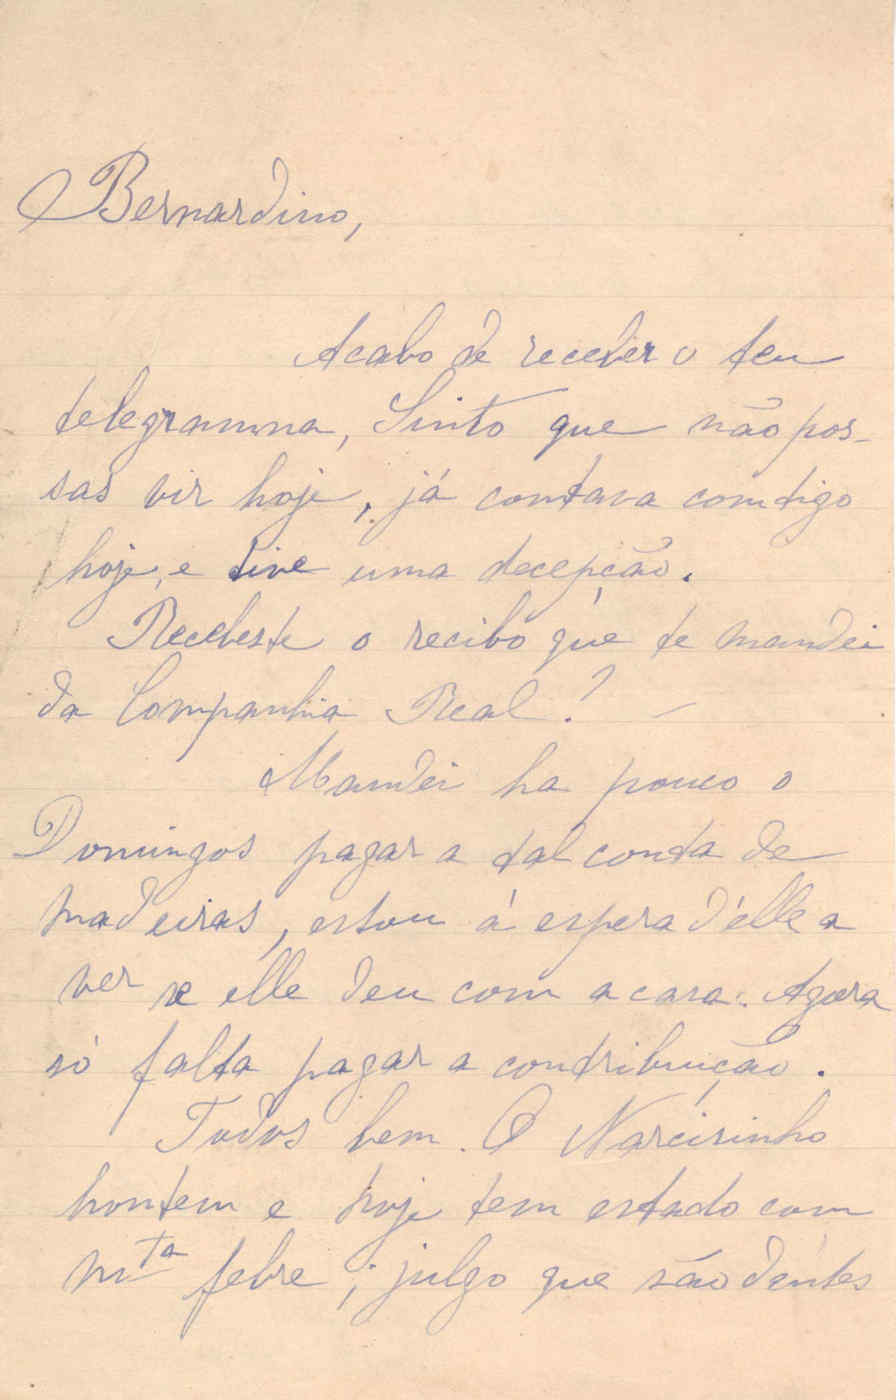 Bernardino,
Acabo de receber o teu
telegramma, Sinto que não pos-
sas vir hoje, já contava comtigo
hoje, e tive uma decepção.
Recebeste o recibo que te mandei
da Companhia Real? —
Mandei ha pouco o
Domingos pagar a tal conta de
madeiras, estou á espera d'élle a
ver se elle deu com a casa. Agora
só falta pagar a contribuição.
Todos bem. O Narcisinho
hontem e hoje tem estado com
mta febre; julgo que são dentes